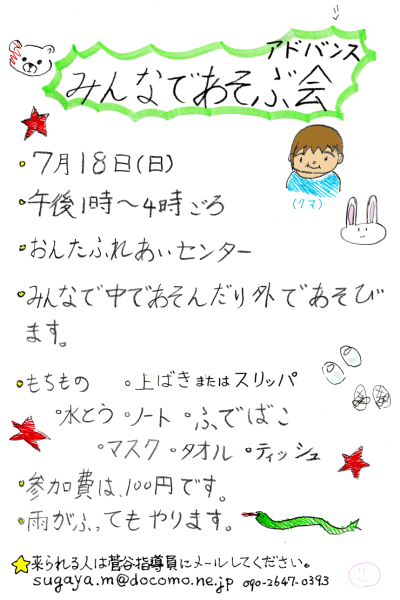 アドバンス
みんなであそぶ会
・7月18日(日)
・午後1時～4時ごろ
(クマ)
・おんたふれあいセンター
・みんなで中であそんだり外であそび
ます。
・もちもの ・上ばきまたはスリッパ
・水とう ・ノート ・ふでばこ
・マスク ・タオル ・ティッシュ
・参加費は、100円です。
・雨がふってもやります。
★来られる人は菅谷指導員にメールしてください。
sugaya.m@docomo.ne.jp 090-2647-0393